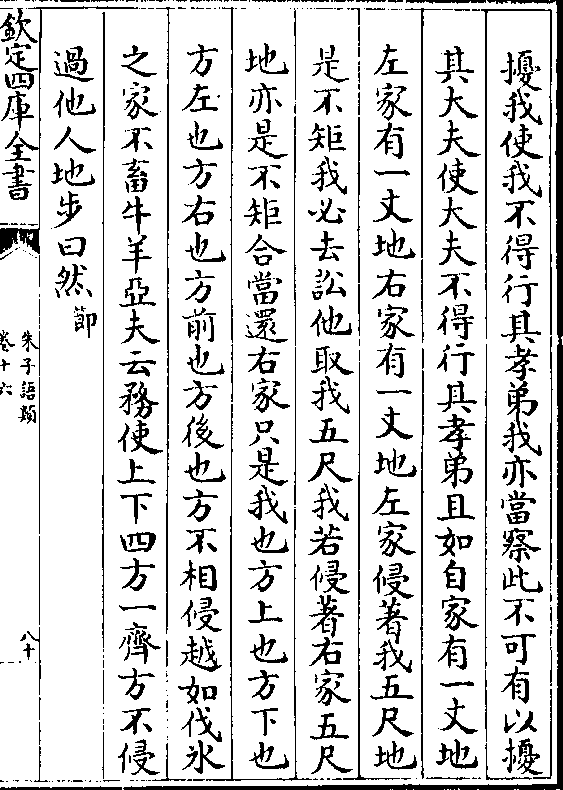 擾我使我不得行其孝弟我亦當察此不可有以擾
其大夫使大夫不得行其孝弟且如自家有一丈地
左家有一丈地右家有一丈地左家侵著我五尺地
是不矩我必去訟他取我五尺我若侵著右家五尺
地亦是不矩合當還右家只是我也方上也方下也
方左也方右也方前也方後也方不相侵越如伐氷
之家不畜牛羊亞夫云務使上下四方一齊方不侵
過他人地步曰然節
欽定四庫全書
朱子語類
卷十六
八十